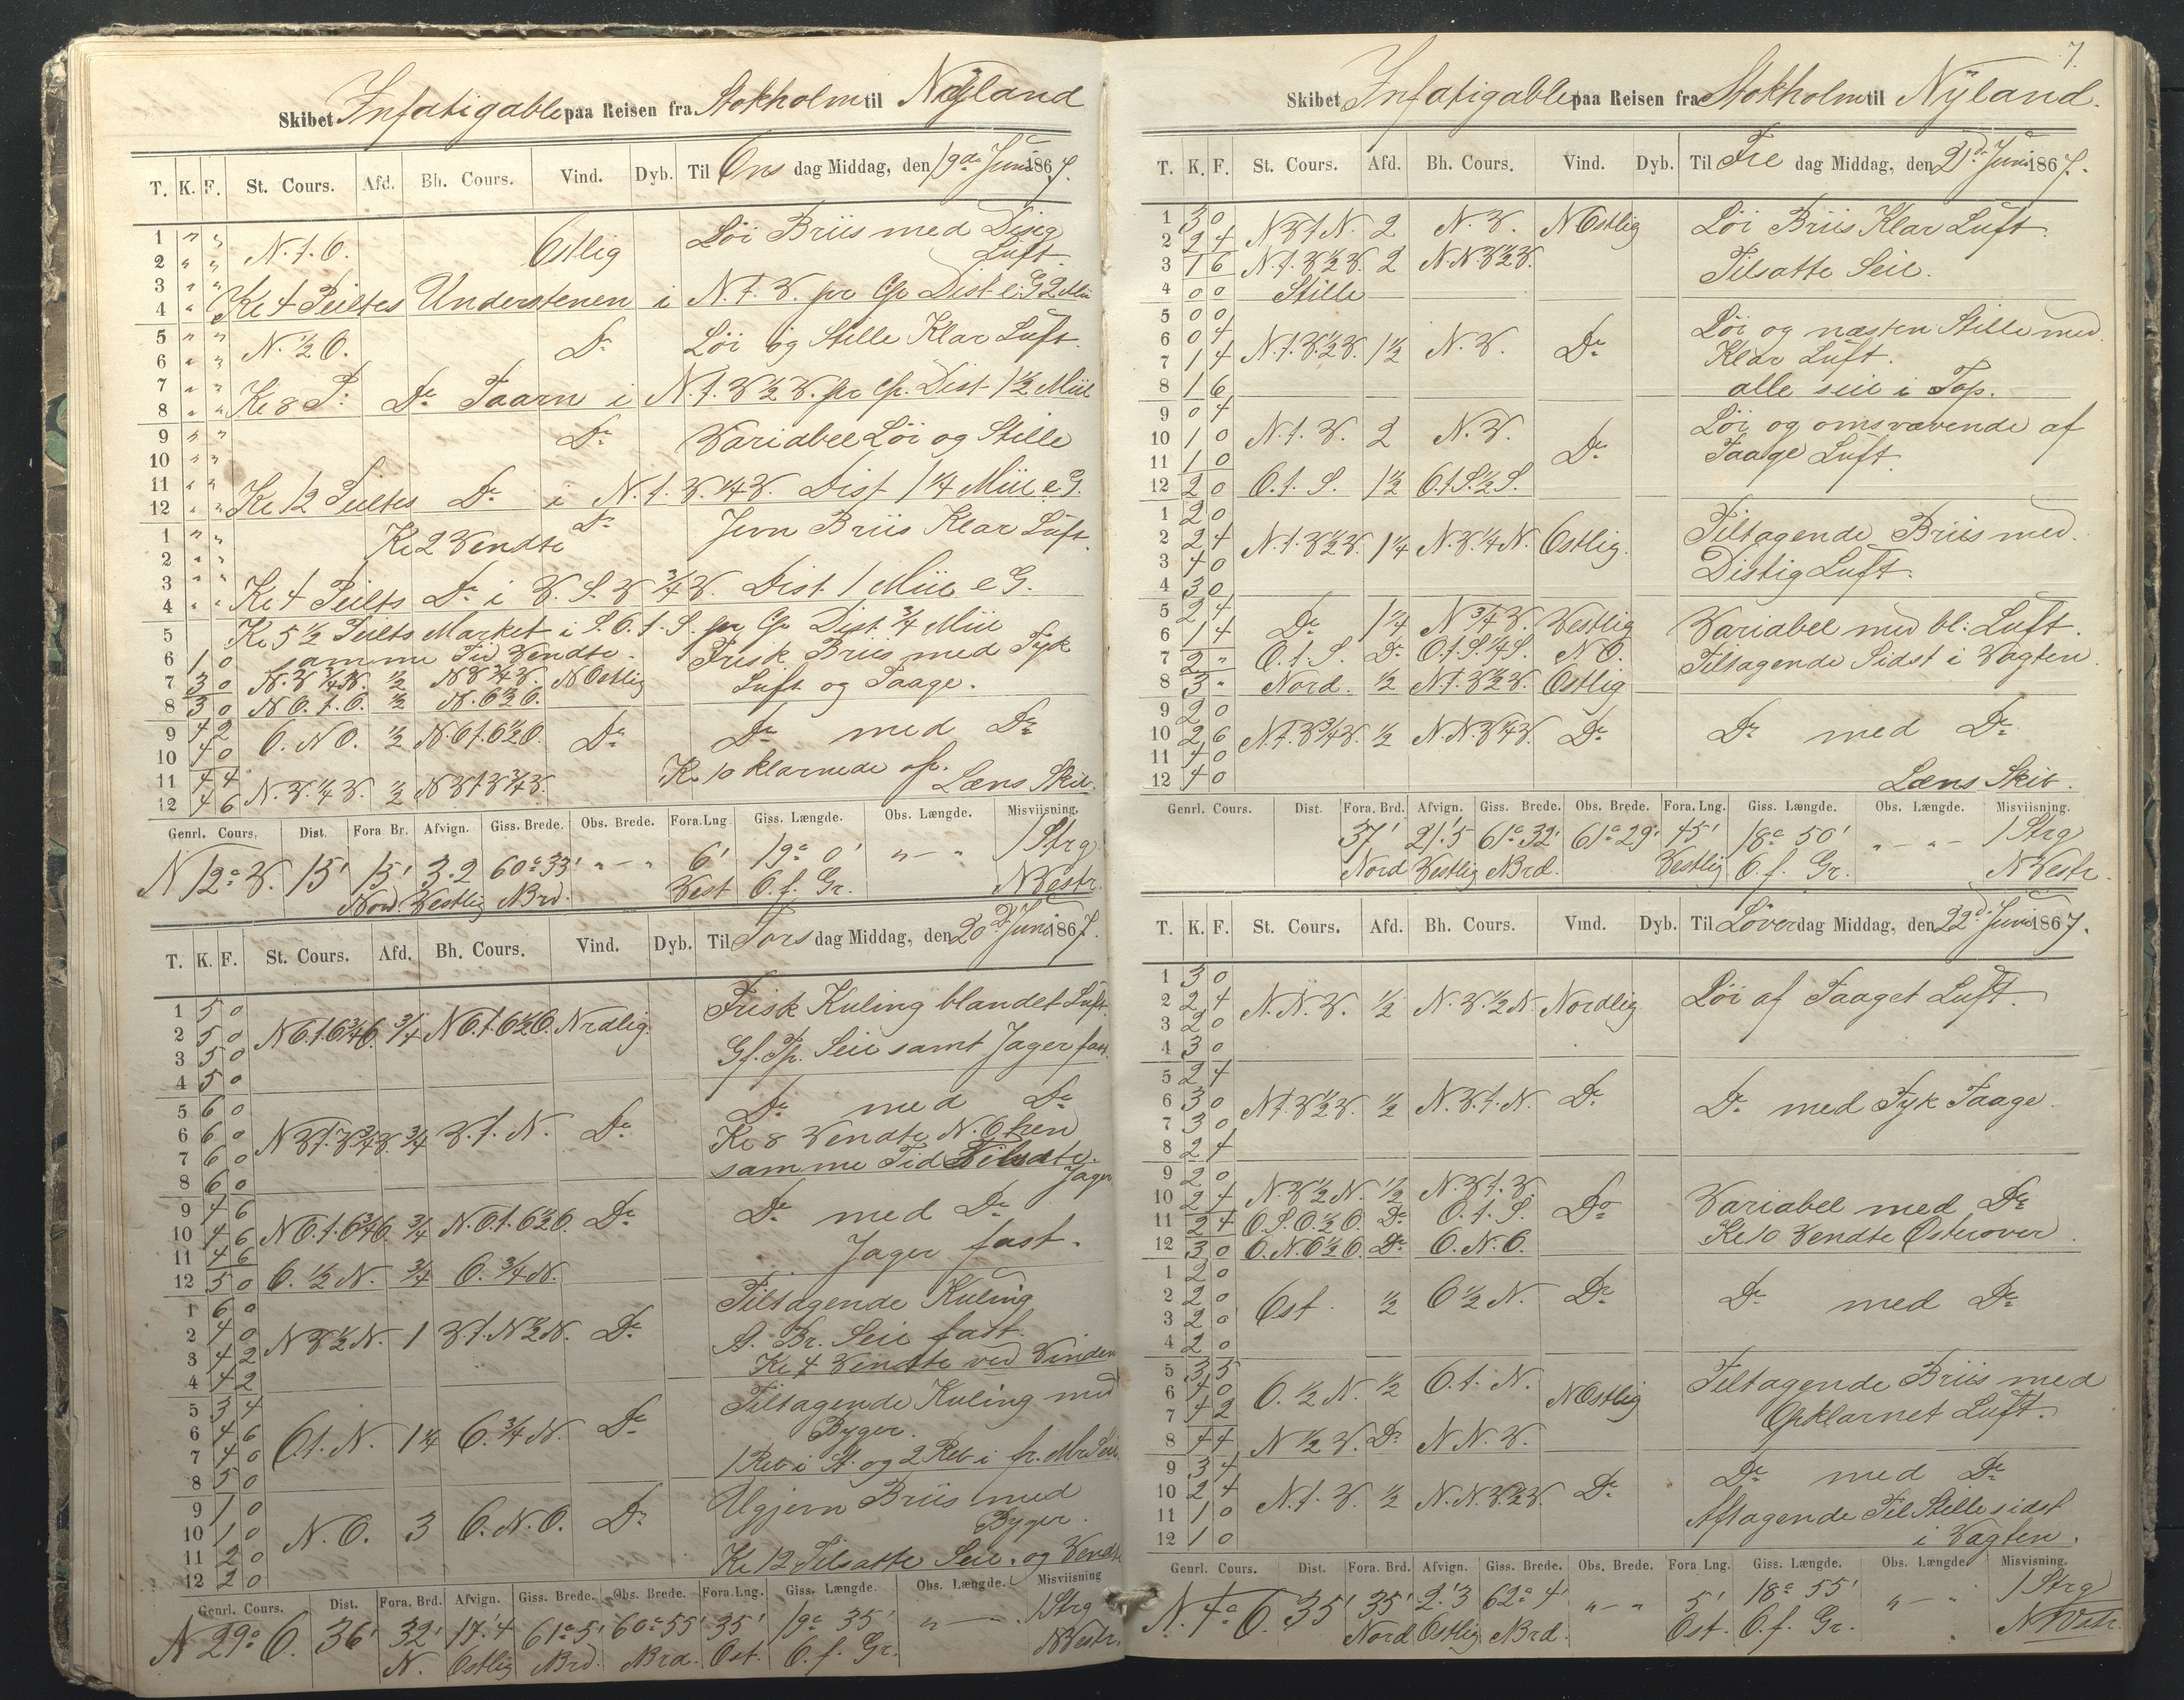 Skibet Infatigable paa Reisen fra Stokholm til Nyland
T. K. F. St. Cours. Afd. Bh. Cours. Vind. Dyb. Til Ons dag Middag, den 19de Juni 1867.
1 " " N. t. O. Ostlig Löi Briis med Disig
2 " " Luft.
3 " "
4 " " Kl 4 Peiltes Understenen i N. t. V. pr Cp. Dist e. G 2 Mii
5 " " N. ½ O. Do Löi og Stille Klar Luft.
6 " "
7 " "
8 " " Kl 8 P. Do Taarn i N. t. V ½ V. pr Cp. Dist 1½ Miil
9 " " Do Variabel Löi og Stille
10 " "
11 " "
12 " " Kl 12 Peiltes Do i N. t. V. ¼ V. Dist 1¼ Miil e G.
1 " " Do Jevn Briis Klar Luft.
2 " " Kl 2 Vendte
3 " "
4 " " Kl 4 Peilts Do i V. S. V ¾ V. Dist. 1 Miil e G.
5 Kl 5½ Peilts Market i S. O. t. S. pr Cp Dist ¾ Miil
6 1 0 samme Tid Vendte. Frisk Briis med Tyk
7 3 0 N. V ¼ N. ½ N V ¾ V. N Ostlig Luft og Taage.
8 3 0 N O. t. O. ½ N. O ½ O.
9 4 2 O. N O. ½ N. O t. O ½ O. Do Do med Do
10 4 0
11 4 4 Kl 10 klarnede op.
12 4 6 N. V. ¼ V. ½ N V t V ¾ V. Læns Skib.
Genrl. Cours. Dist. Fora. Br. Afvign. Giss. Brede. Obs. Brede. Fora. Lng. Giss. Længde. Obs. Længde. Misviisning.
N 12° V. 15' 15' 3.2 60° 33' " — " 6' 19° 0' " — " 1 Strg
Nord. Vestlig N Brd. Vest O. f. Gr. N Vestr.
T. K. F. St. Cours. Afd. Bh. Cours. Vind. Dyb. Til Tors dag Middag, den 20de Juni 1867.
1 5 0 Frisk Kuling blandet Luft.
2 5 0 N O. t. O ¾ O. ¾ N O. t. O ½ O. Nrdlig.
3 5 0 Gf. Tp. Seil samt Jager fast.
4 5 0
5 6 0 Do med Do
6 6 0 N V t. V ¾ V. ¾ V. t. N. Do Kl 8 Vendte N. O hen
7 6 0 samme Tid Tilsatte.
8 6 0 Jager
9 4 6 Do med Do
10 4 6 N O. t. O ¾ O. ¾ N. O. t. O ½ O. Do
11 4 6 Jager fast.
12 5 0 O. ½ N. ¾ O. ¾ N.
1 6 0 Tiltagende Kuling
2 4 0 N V ½ N. 1 V t. N ½ N. Do A. Br. Seil fast.
3 4 2 Kl 4 Vendte ved Vinden
4 4 2
5 3 4 Tiltagende Kuling med
6 4 6 O t. N. 1¼ O. ¾ N. Do Byger.
7 4 0 1 Reb i A. og 2 Reb i fr. Mrs Seil
8 5 0
9 1 0 Ugjevn Briis med
10 1 0 N. O. 3 O. N. O. Do Byger.
11 2 0 Kl 12 Tilsatte Seil. og Vendte
12 2 0
Genrl. Cours. Dist. Fora. Brd. Afvign. Giss. Brede. Obs. Brede. Fora. Lng. Giss. Længde. Obs. Længde. Misviisning
N 29° O. 36' 32' 17'.4 61° 5' 60° 55' 35' 19° 35' " — " 1 Strg
N. Ostlig N Brd. N Brd. Ost. O. f. Gr. N Vestr.
7.
Skibet Infatigable paa Reisen fra Stokholm til Nyland.
T. K. F. St. Cours. Afd. Bh. Cours. Vind. Dyb. Til Fre dag Middag, den 21de Juni 1867.
1 3 0 N V t N. 2 N. V. N Ostlig Löi Briis Klar Luft.
2 2 4
3 1 6 N. t. V ½ V. 2 N. N. V ½ V. Tilsatte Seil.
4 0 0 Stille
5 0 0 Löi og næsten Stille med
6 0 4 N. t. V. ½ V. 1½ N. V. Do Klar Luft.
7 1 4
8 1 6 alle seil i Top.
9 0 4 Löi og omsvævende af
10 1 0 N. t. V. 2 N. V. Do
11 1 0 Taage Luft.
12 2 0 O. t. S. 1½ O. t S. ½ S.
1 2 0 Tiltagende Briis med.
2 2 4 N. t. V ½ V. 1¼ N. V. ¼ N. Ostlig.
3 4 0 Distig Luft.
4 3 0
5 2 4 Variabel med bl: Luft.
6 1 4 Do 1¼ N ¾ V. Vestlig
7 2 " O. t. S. Do O. t. S. ¼ S. N O. Tiltagende Sidst i Vagten.
8 3 " Nord. ½ N. t. V ½ V. Ostlig
9 2 0
10 2 6 N. t. V ¾ V. ½ N. N. V ¼ V. Do Do med Do
11 4 0
12 4 0 Læns Skib.
Genrl. Cours. Dist. Fora. Brd. Afvign. Giss. Brede. Obs. Brede. Fora. Lng. Giss. Længde. Obs. Længde. Misviisning.
37' 21'.5 61° 32' 61° 29' 45' 18° 50' " — " — 1 Strg
Nord Vestlig N Brd. Vestlig O. f. Gr. N Vestr.
T. K. F. St. Cours. Afd. Bh. Cours. Vind. Dyb. Til Löver dag Middag, den 22de Juni 1867.
1 3 0
2 2 4 N. N. V. ½ N. V. ½ N. Nordlig Löi af Taaget Luft.
3 2 0
4 3 0
5 2 4
6 3 0 N t. V ½ V. ½ N. V. t. N. Do Do med Tyk Taage.
7 3 0
8 2 4
9 2 0
10 2 4 N. V ½ N. ½ N. V t. V. Do Variabel med Do
11 2 4 O. S. O. ½ O. Do O. t. S.
12 3 0 O. N. O ½ O. Do O. N. O. Kl 10 Vendte Osterover.
1 2 0
2 2 0 Ost. ½ O ½ N. Do Do med Do
3 2 0
4 2 0
5 3 5 Tiltagende Briis med
6 4 0 O. ½ N. ½ O. t. N. N Ostlig
7 4 2 Opklarnet Luft.
8 4 4 N ½ V. Do N N. V.
9 3 4 Do med Do
10 2 4 N. t. V. ½ N. N. V. ½ V. Do
11 1 0 Aftagende Til Stille sidst
12 1 0 i Vagten.
Genrl. Cours. Dist. Fora. Brd. Afvign. Giss. Brede. Obs. Brede. Fora Lng. Giss. Længde. Obs. Længde Misvisning.
N. 4° O. 35' 35' 2.'3 62° 4' " — " 5' 18° 55' " — " 1 Strg
Nord Ostlig N Brd. Ost. O. f. Gr. N Vstr.